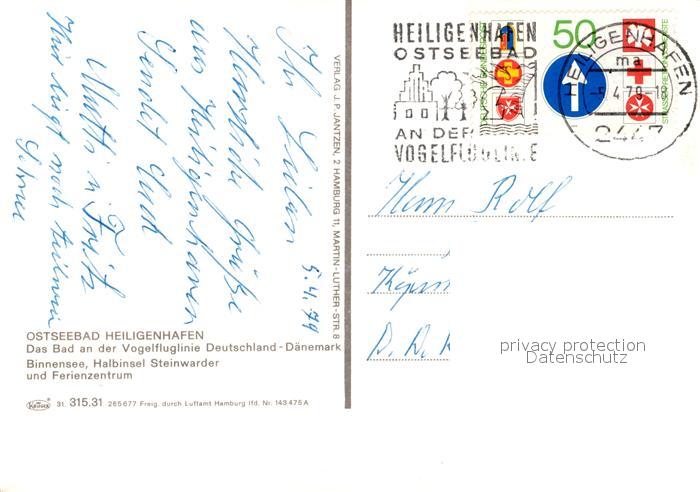 5.4.79
Ihr Lieben
Herzliche Grüße
aus Heiligenhafen
sendet Euch
Mutti u. Fritz
Hier liegt noch teilweise
Schnee
VERLAG J. P. JANTZEN, 2 HAMBURG 11, MARTIN-LUTHER-STR. 8
OSTSEEBAD HEILIGENHAFEN
Das Bad an der Vogelfluglinie Deutschland - Dänemark
Binnensee, Halbinsel Steinwarder
und Ferienzentrum
Krüger 31. 315.31 265677 Freig. durch Luftamt Hamburg lfd. Nr. 143.475 A
HEILIGENHAFEN
OSTSEEBAD
AN DER
VOGELFLUGLINIE
50
HEILIGENHAFEN
ma
-5.4.79-18
2447
Herrn Rolf
privacy protection
Datenschutz